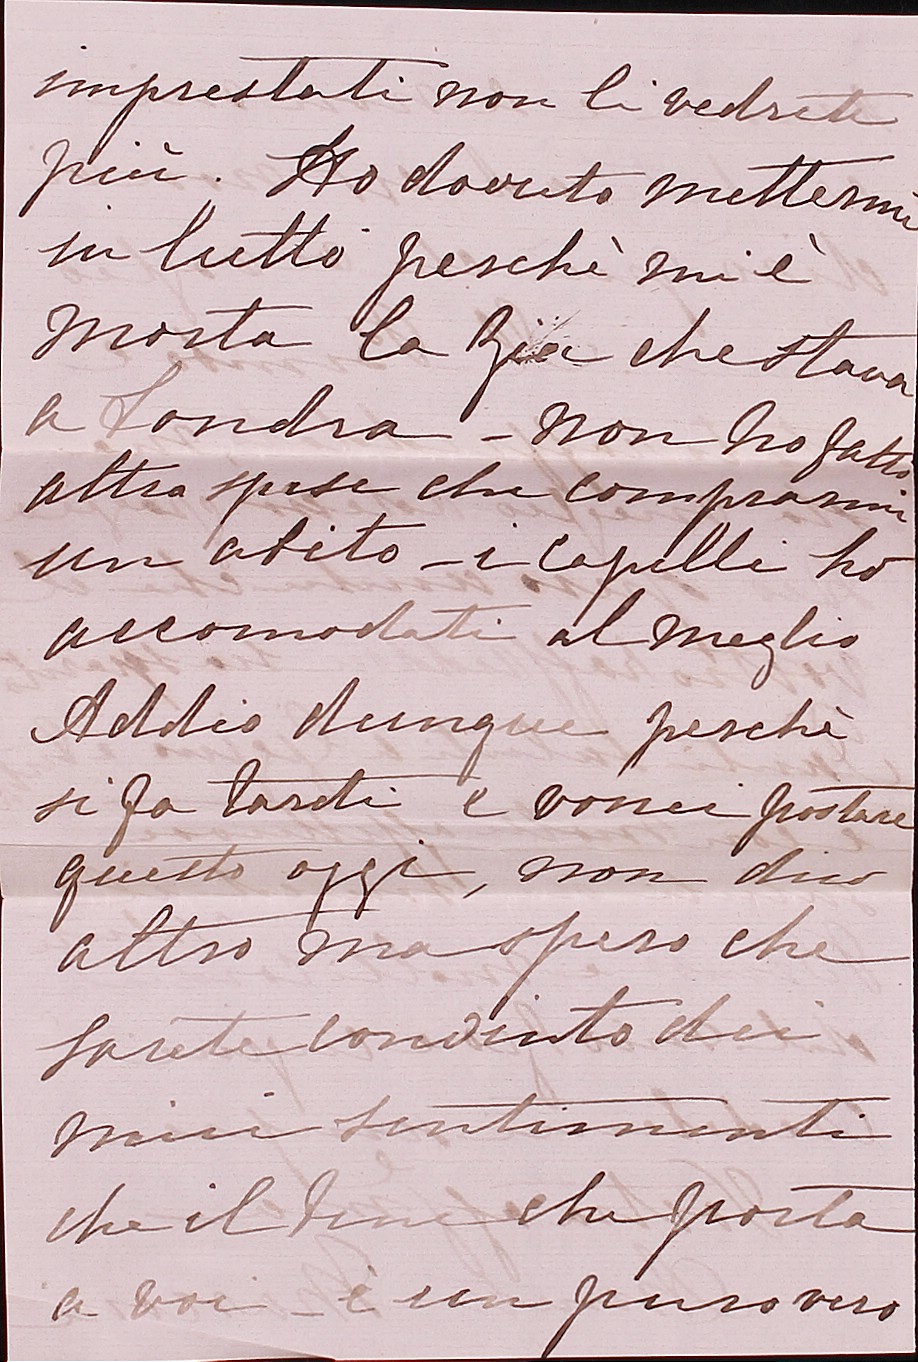 imprestati non li vedrete
più. Ho dovuto mettermi
in lutto perchè mi è
morta la Zia che stava
a Londra - non ho fatto
altra spese che comprarmi
un abito - i capelli ho
accomodati al meglio
Addio dunque perchè
si fa tardi e vorrei postare
questo oggi, non dico
altro ma spero che
sarete convinto dei
miei sentimenti
che il bene che porta
a voi - è un puro vero